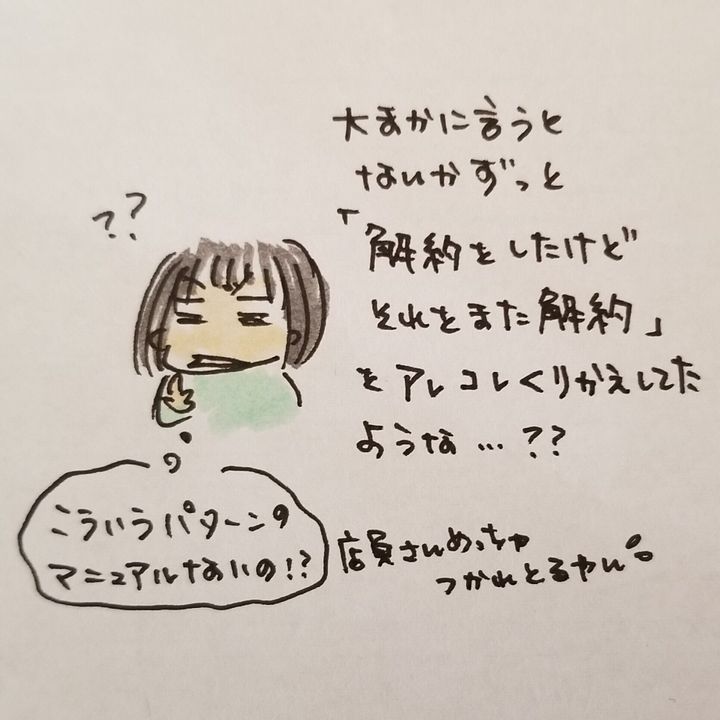 ??
大まかに言うと
ないかずっと
「解約をしたけど
それをまた解約」
をアレコレくりかえしてた
ような…??
こういうパターンの
マニュアルないの!?
店員さんめっちゃ
つかれとるやん